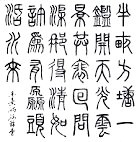 半畝方塘一
鑑開天光雲
景共徘徊問
渠那得清如
許為有源頭
活水來